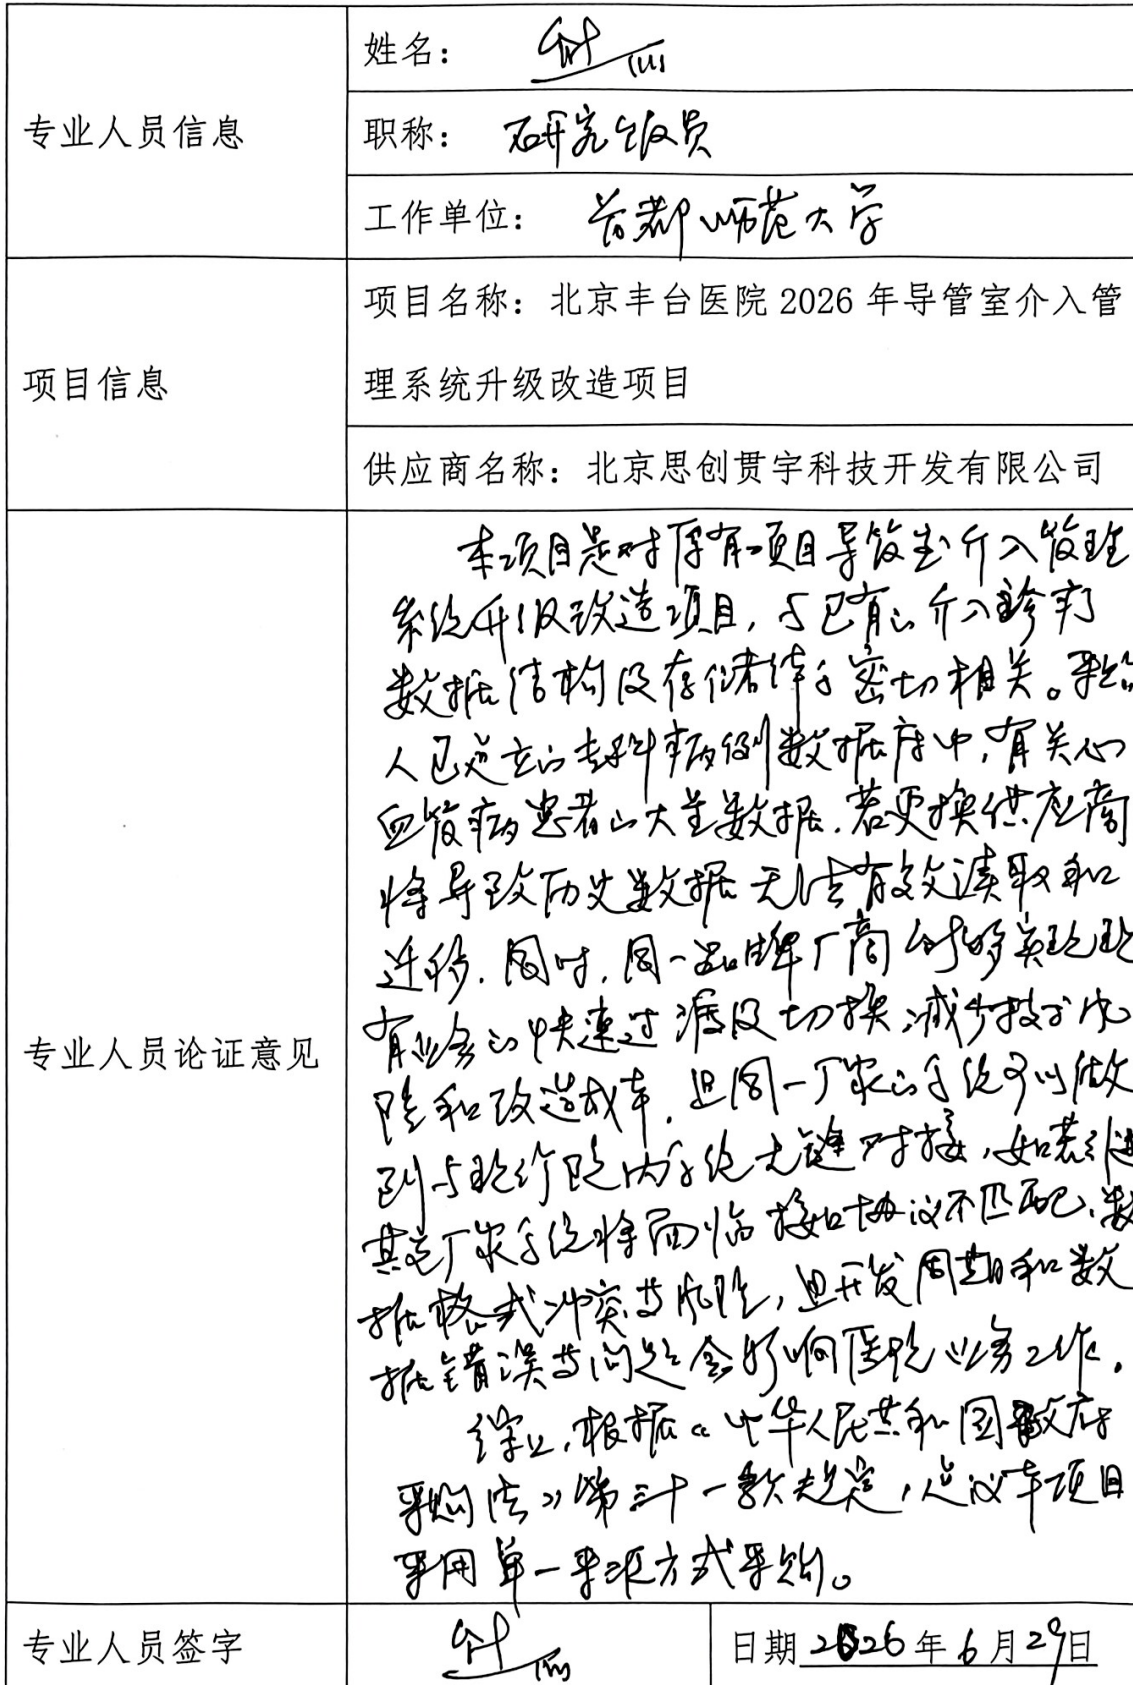 专业人员信息
姓名：
职称：研究馆员
工作单位：首都师范大学
项目信息
项目名称：北京丰台医院 2026 年导管室介入管
理系统升级改造项目
供应商名称：北京思创贯宇科技开发有限公司
专业人员论证意见
本项目是对原有项目导管室介入管理
系统升级改造项目，与已有的介入诊疗
数据结构及存储体系密切相关。采购
人已建立的专科病例数据库中，有关心
血管病患者的大量数据，若更换供应商
将导致历史数据无法有效读取和
迁移。同时，同一品牌厂商能够实现现
有业务的快速过渡及切换，减少技术风
险和改造成本，且同一厂家的系统可以做
到与现行院内系统无缝对接，如若引进
其它厂家系统将面临接口协议不匹配、数
据格式冲突等风险，且开发周期和数
据错误等问题会影响医院业务工作。
综上，根据《中华人民共和国政府
采购法》第三十一款规定，建议本项目
采用单一来源方式采购。
专业人员签字
日期 2026 年 6 月 29 日